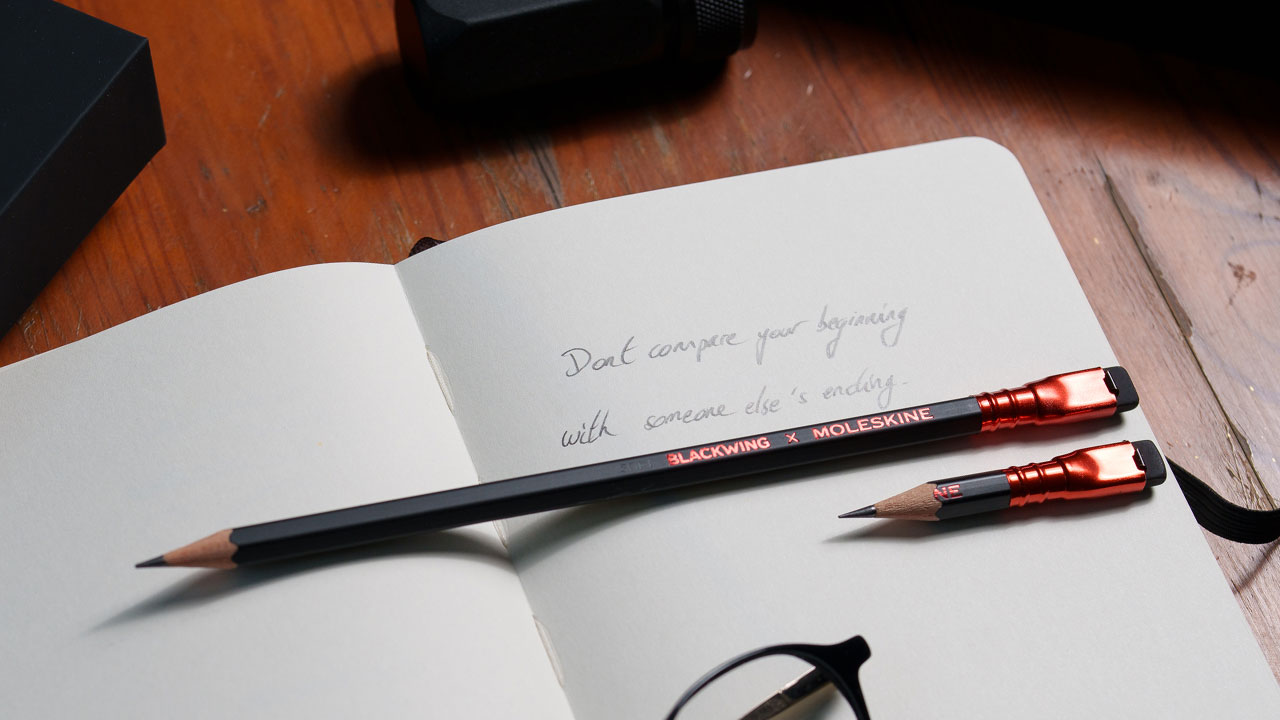 Dont compare your beginning
with someone else's ending.
BLACKWING X MOLESKINE
NE